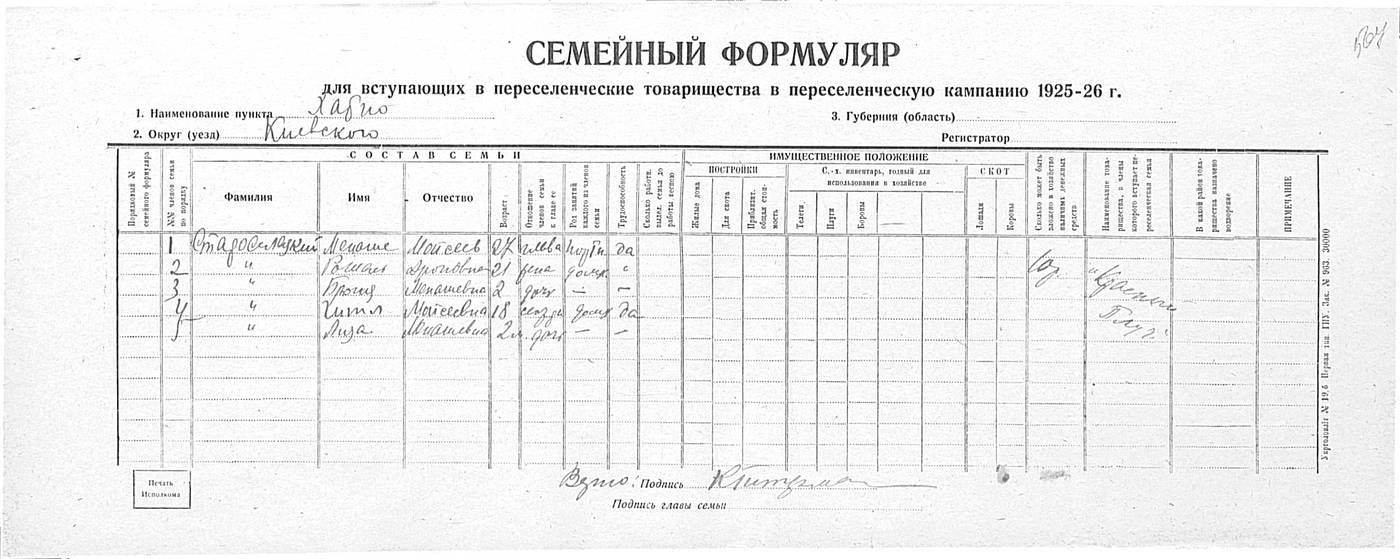 564
СЕМЕЙНЫЙ ФОРМУЛЯР
для вступающих в переселенческие товарищества в переселенческую кампанию 1925-26 г.
1. Наименование пункта Хабно
3. Губерния (область)
2. Округ (уезд) Киевского
Регистратор
СОСТАВ СЕМЬИ
ИМУЩЕСТВЕННОЕ ПОЛОЖЕНИЕ
Порядковый № семейного формуляра
№№ членов семьи по порядку
Фамилия
Имя
Отчество
Возраст
Отношение членов семьи к главе ее
Род занятий каждого из членов семьи
Трудоспособность
Сколько работн. выдел. семья до работы весною
ПОСТРОЙКИ
Жилые дома
Для скота
Приблизит. общая стоимость
С.-х. инвентарь, годный для использования в хозяйстве
Телеги
Плуги
Бороны
СКОТ
Лошади
Коровы
Сколько может быть вложено в хозяйство наличных денежных средств
Наименование товарищества, в члены которого вступает переселенческая семья
В какой район товарищества назначено водворение
ПРИМЕЧАНИЕ
1 Старосилецкий Менаше Мойсеев 27 глава портн да
2 " Рошель 21 жена домх "
3 " Броня Менашевна 2 дочь — —
4 " Хитл Мойсеевна 18 сестра домх да
5 " Лиза Менашевна 2 м. дочь — —
"Красный Плуг"
Укрголовліт № 19,6 Первая тип. ГПУ. Зак. № 963. 30000
Печать Исполкома
Верно: Подпись
Подпись главы семьи